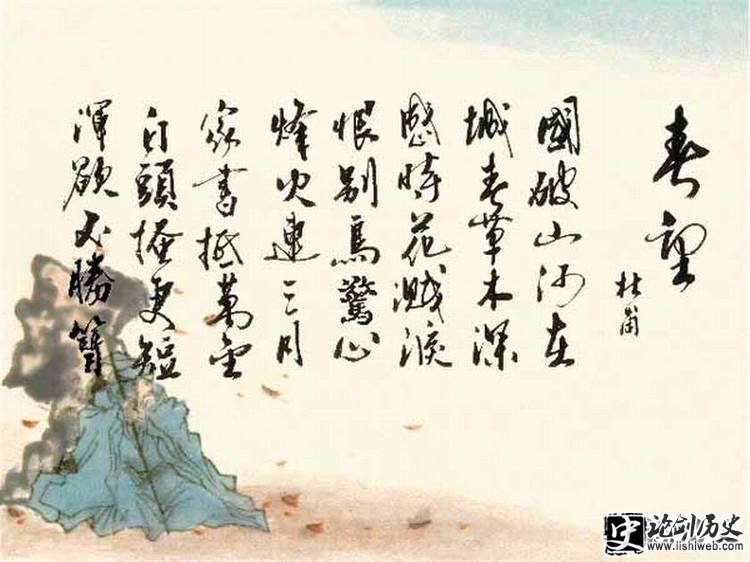 春望
杜甫
國破山河在
城春草木深
感時花濺淚
恨别鳥驚心
烽火連三月
家書抵萬金
白頭搔更短
渾欲不勝簪
史 论剑历史
www.lishiweb.com